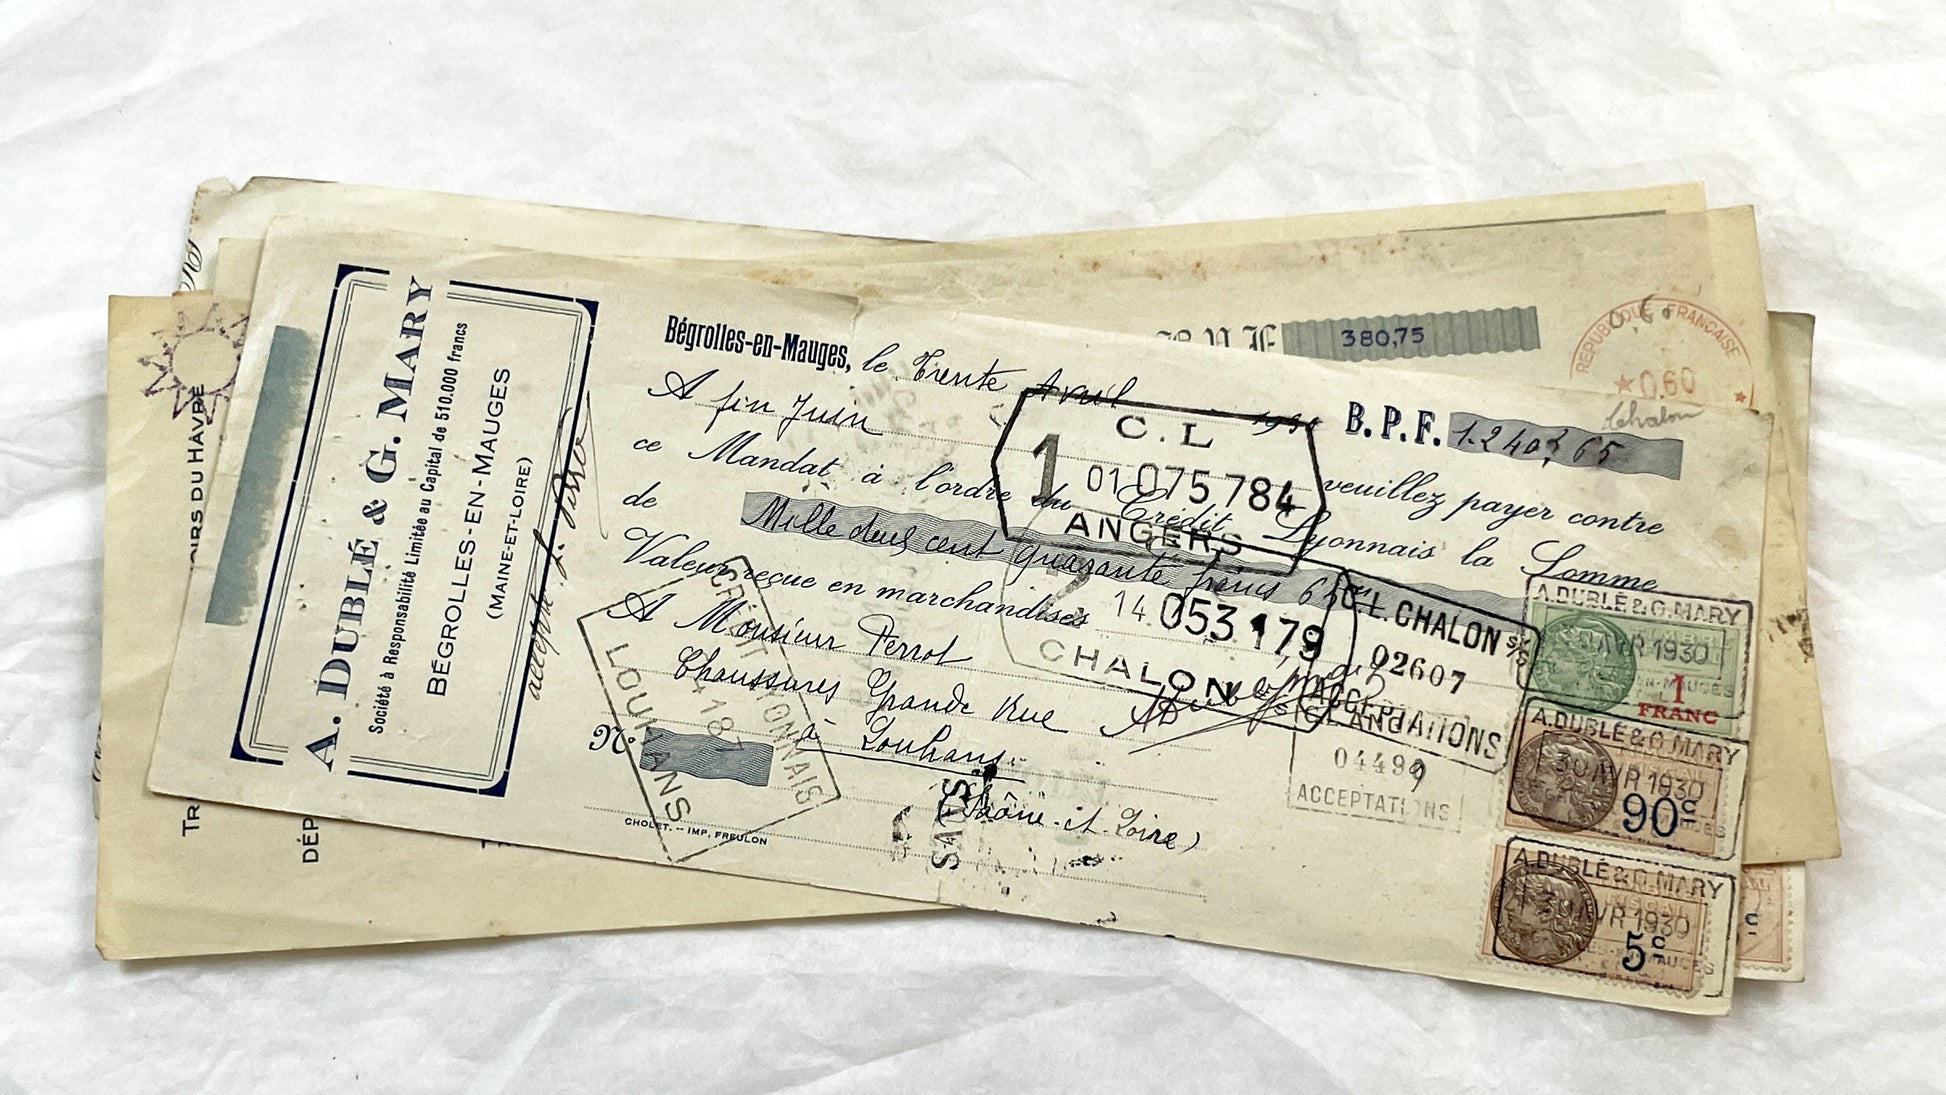 A. DUBLÉ & G. MARY
Société à Responsabilité Limitée au Capital de 510.000 francs
BÉGROLLES-EN-MAUGES
(MAINE-ET-LOIRE)
Bégrolles-en-Mauges, le Trente Avril 1930
B.P.F. 1.240f 65
A fin Juin veuillez payer contre
ce Mandat à l'ordre du Crédit Lyonnais la Somme
de Mille deux cent quarante francs 65
Valeur reçue en marchandises
A Monsieur Perrot
Chaussures Grande Rue
à Louhans
(Saône-et-Loire)
Nº
CHOLET. -- IMP. FREULON
C.L
1 01075784
ANGERS
14 053179
CHALON
C.L. CHALON S/S
02607
ACCEPTATIONS
04499
ACCEPTATIONS
CRÉDIT LYONNAIS
LOUHANS
A. DUBLÉ & G. MARY
30 AVR 1930
1
FRANC
A. DUBLÉ & G. MARY
30 AVR 1930
90c
A. DUBLÉ & G. MARY
30 AVR 1930
5c
380,75
REPUBLIQUE FRANCAISE
★0,60 ★
Chalon
OIRS DU HÂVRE
TR
DÉP